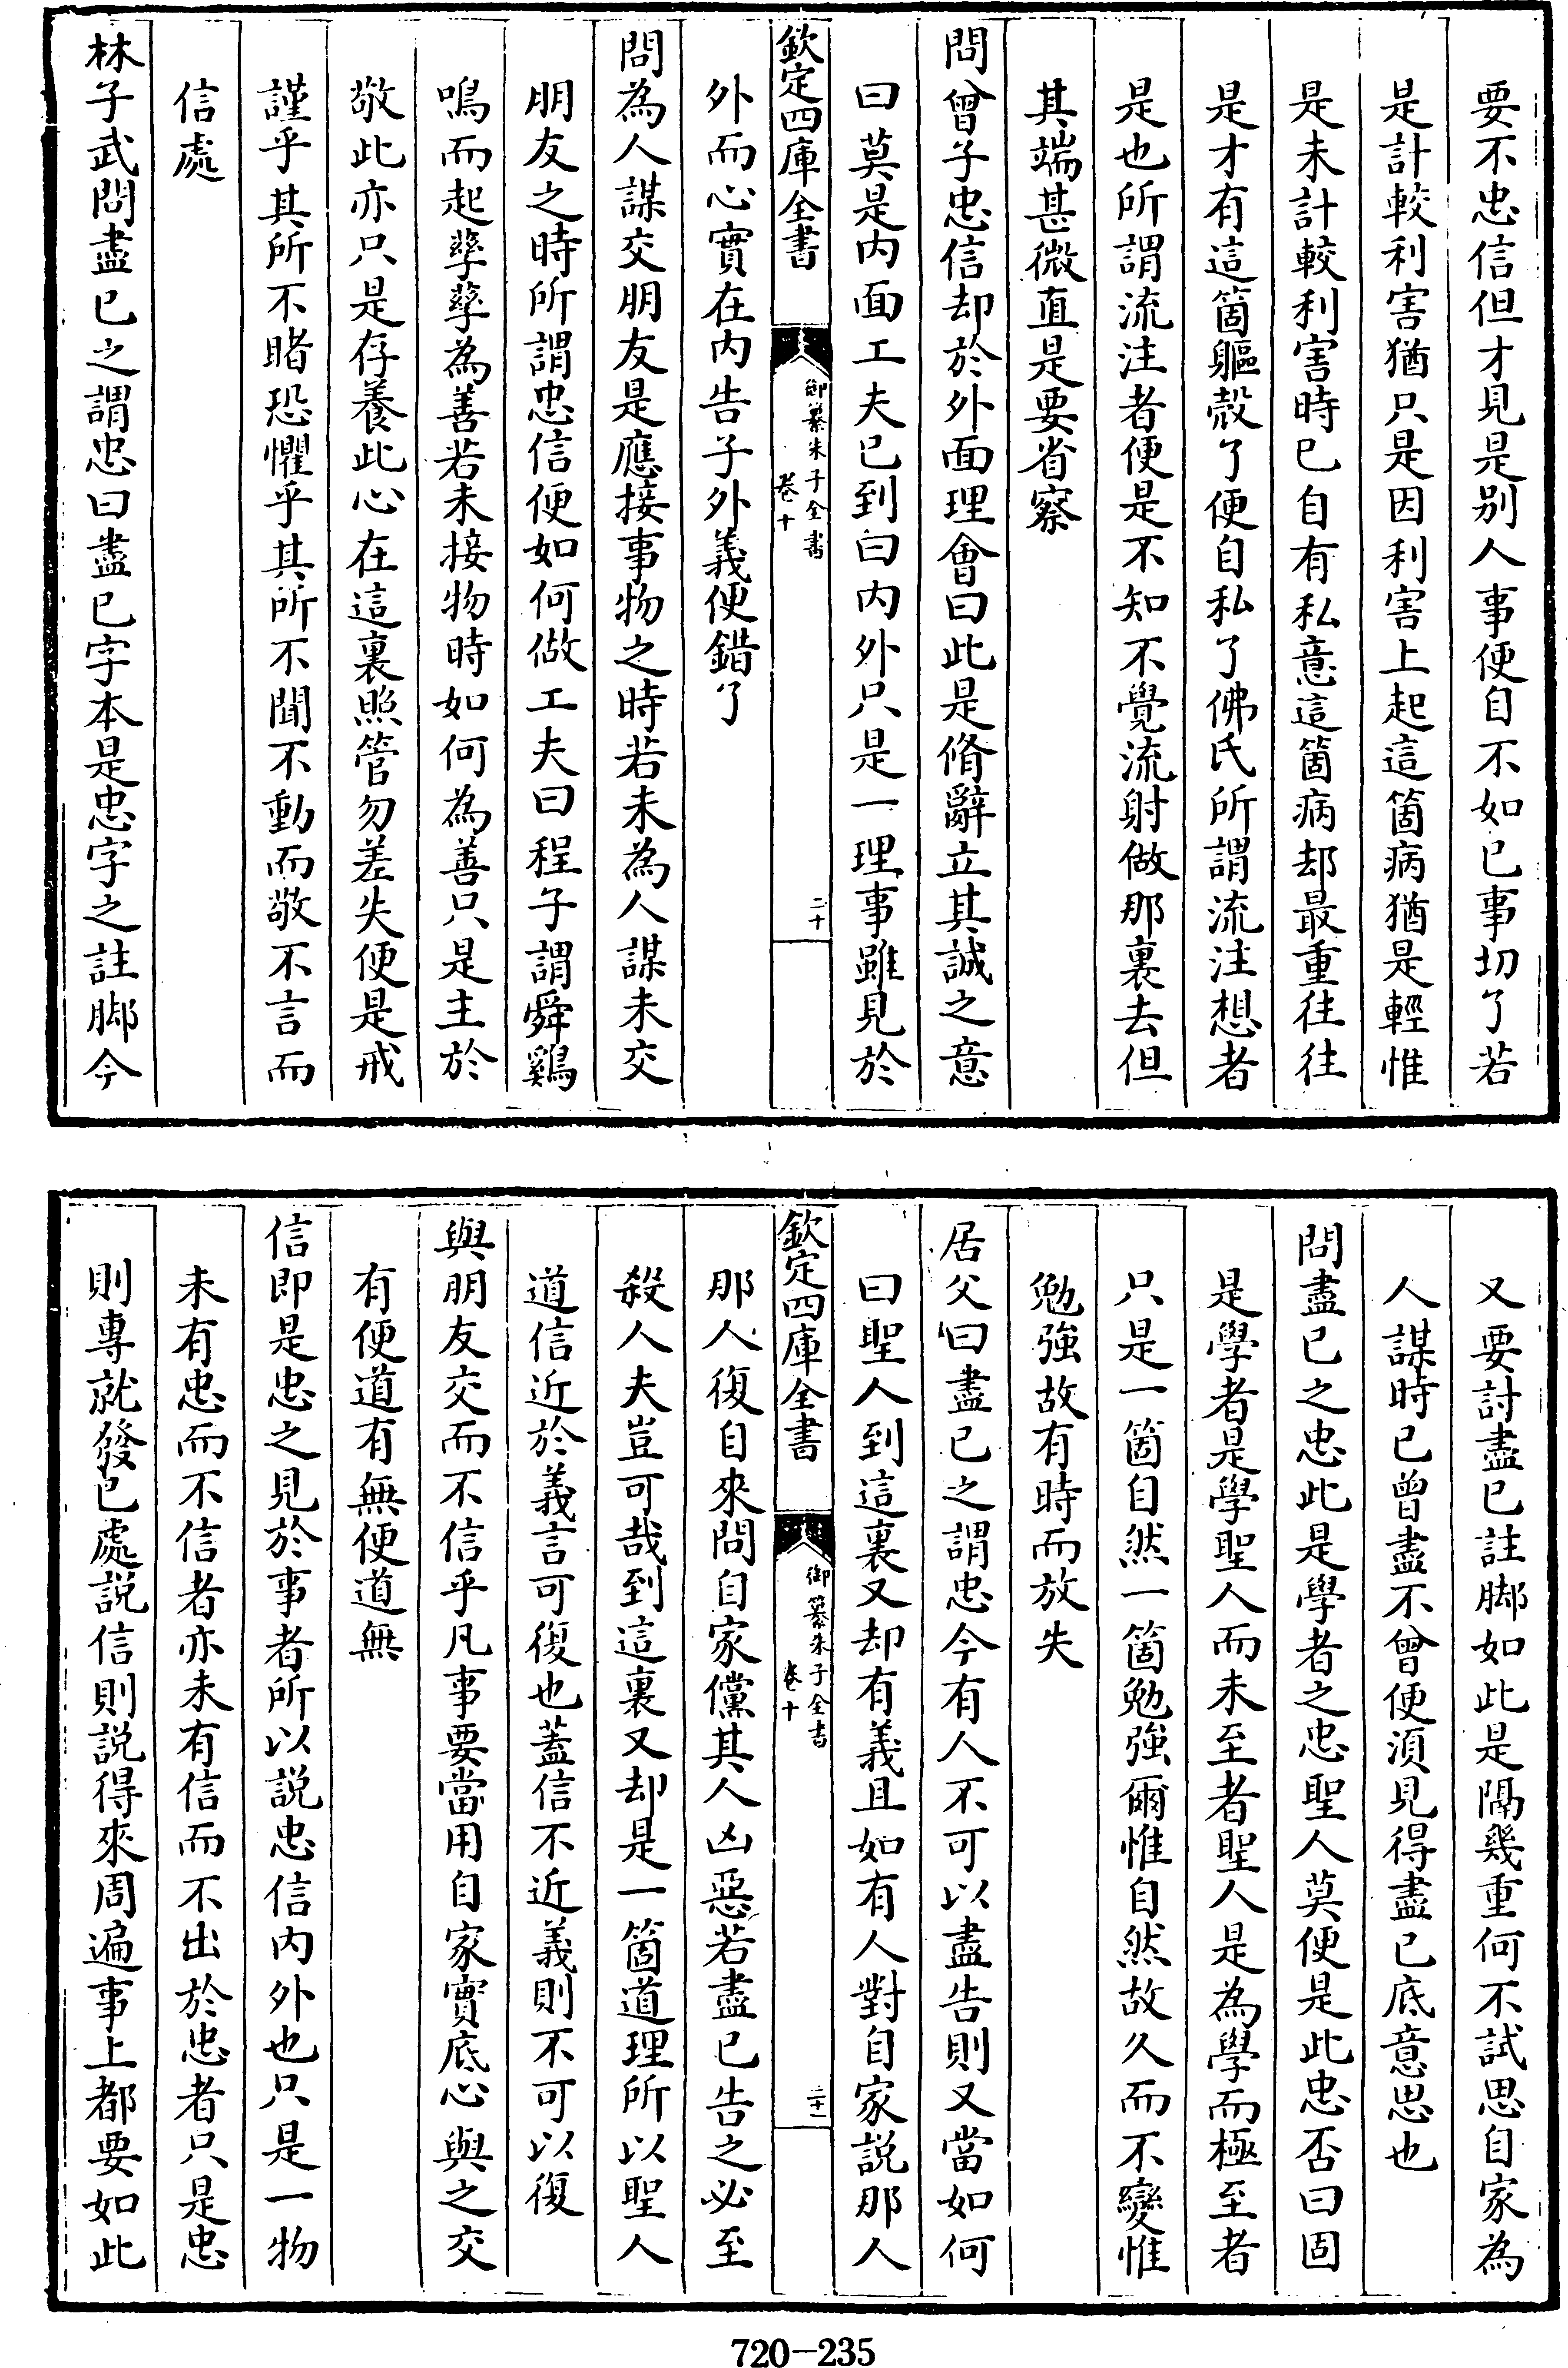 要不忠信但才見是别人事便自不如己事切了若
是計較利害猶只是因利害上起這箇病猶是輕惟
是未計較利害時已自有私意這箇病却最重往往
是才有這箇軀殻了便自私了佛氏所謂流注想者
是也所謂流注者便是不知不覺流射做那裏去但
其端甚微直是要省察
問曾子忠信却於外面理會曰此是脩辭立其誠之意
曰莫是内面工夫已到曰内外只是一理事雖見於
欽定四庫全書
御纂朱子全書
卷十
二十
外而心實在内告子外義便錯了
問為人謀交朋友是應接事物之時若未為人謀未交
朋友之時所謂忠信便如何做工夫曰程子謂舜鷄
鳴而起孳孳為善若未接物時如何為善只是主於
敬此亦只是存養此心在這裏照管勿差失便是戒
謹乎其所不睹恐懼乎其所不聞不動而敬不言而
信處
林子武問盡己之謂忠曰盡己字本是忠字之註脚今
又要討盡己註脚如此是隔幾重何不試思自家為
人謀時已曾盡不曾便須見得盡己底意思也
問盡己之忠此是學者之忠聖人莫便是此忠否曰固
是學者是學聖人而未至者聖人是為學而極至者
只是一箇自然一箇勉強爾惟自然故久而不變惟
勉強故有時而放失
居父曰盡己之謂忠今有人不可以盡告則又當如何
曰聖人到這裏又却有義且如有人對自家説那人
欽定四庫全書
御纂朱子全書
卷十
二十一
那人復自來問自家儻其人凶惡若盡己告之必至
殺人夫豈可哉到這裏又却是一箇道理所以聖人
道信近於義言可復也蓋信不近義則不可以復
與朋友交而不信乎凡事要當用自家實底心與之交
有便道有無便道無
信即是忠之見於事者所以説忠信内外也只是一物
未有忠而不信者亦未有信而不出於忠者只是忠
則專就發已處説信則説得來周遍事上都要如此
720-235